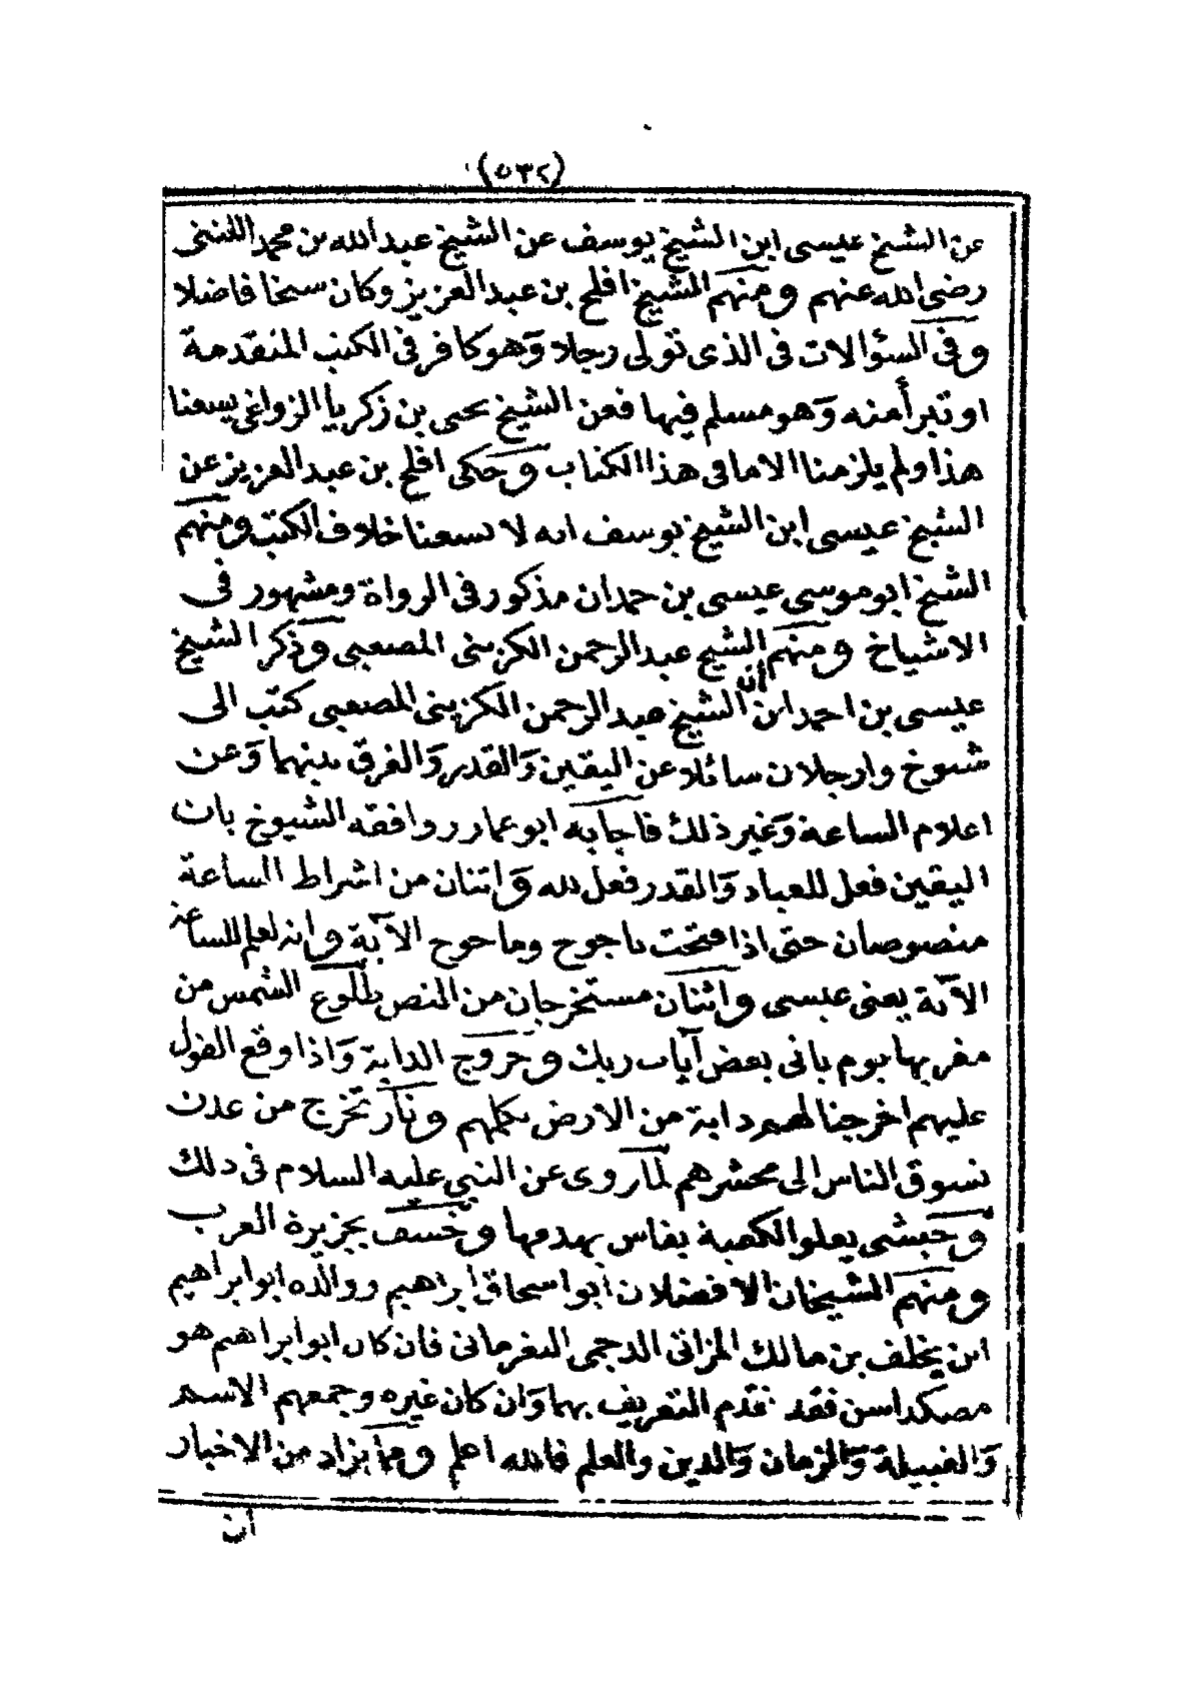 (٥٣٢)
عن الشيخ عيسى ابن الشيخ يوسف عن الشيخ عبد الله بن محمد اللنثى
رضى الله عنهم ومنهم الشيخ افلح بن عبد العزيز وكان شيخا فاضلا
وفى السئوالات فى الذى تولى رجلا وهو كافر فى الكتب المتقدمة
او تبرأ منه وهو مسلم فيها فعن الشيخ يحيى بن زكريا الزواغى يسعنا
هذا ولم يلزمنا الا ما فى هذا الكتاب وحكى افلح بن عبد العزيز عن
الشيخ عيسى ابن الشيخ يوسف انه لا يسعنا خلاف الكتب ومنهم
الشيخ ابو موسى عيسى بن حمدان مذكور فى الرواة ومشهور فى
الاشياخ ومنهم الشيخ عبد الرحمن الكزينى المصعبى وذكر الشيخ
عيسى بن احمد ان ابن الشيخ عبد الرحمن الكزينى المصعبى كتب الى
شيوخ وارجلان سائلا عن اليقين والقدر والفرق بينهما وعن
اعلام الساعة وغير ذلك فاجابه ابو عمار ووافقه الشيوخ بان
اليقين فعل للعباد والقدر فعل لله واثنان من اشراط الساعة
منصوصان حتى اذا فتحت ياجوج وماجوج الآية وانه لعلم للساعة
الآية يعنى عيسى واثنان مستخرجان من النص طلوع الشمس من
مغربها يوم ياتى بعض آيات ربك وخروج الدابة واذا وقع القول
عليهم اخرجنا لهم دابة من الارض تكلمهم ونار تخرج من عدن
تسوق الناس الى محشرهم لما روى عن النبى عليه السلام فى ذلك
وحبشى يعلو الكعبة بفاس يهدمها وخسف بجزيرة العرب
ومنهم الشيخان الافضلان ابو اسحاق ابراهيم ووالده ابو ابراهيم
ابن يخلف بن مالك المزاتى الدجمى النفرمانى فان كان ابو ابراهيم هو
مصكداسن فقد تقدم التعريف بهما وان كان غيره وجمعهم الاسم
والقبيلة والزمان والدين والعلم فالله اعلم ومما يزاد من الاخبار
ان